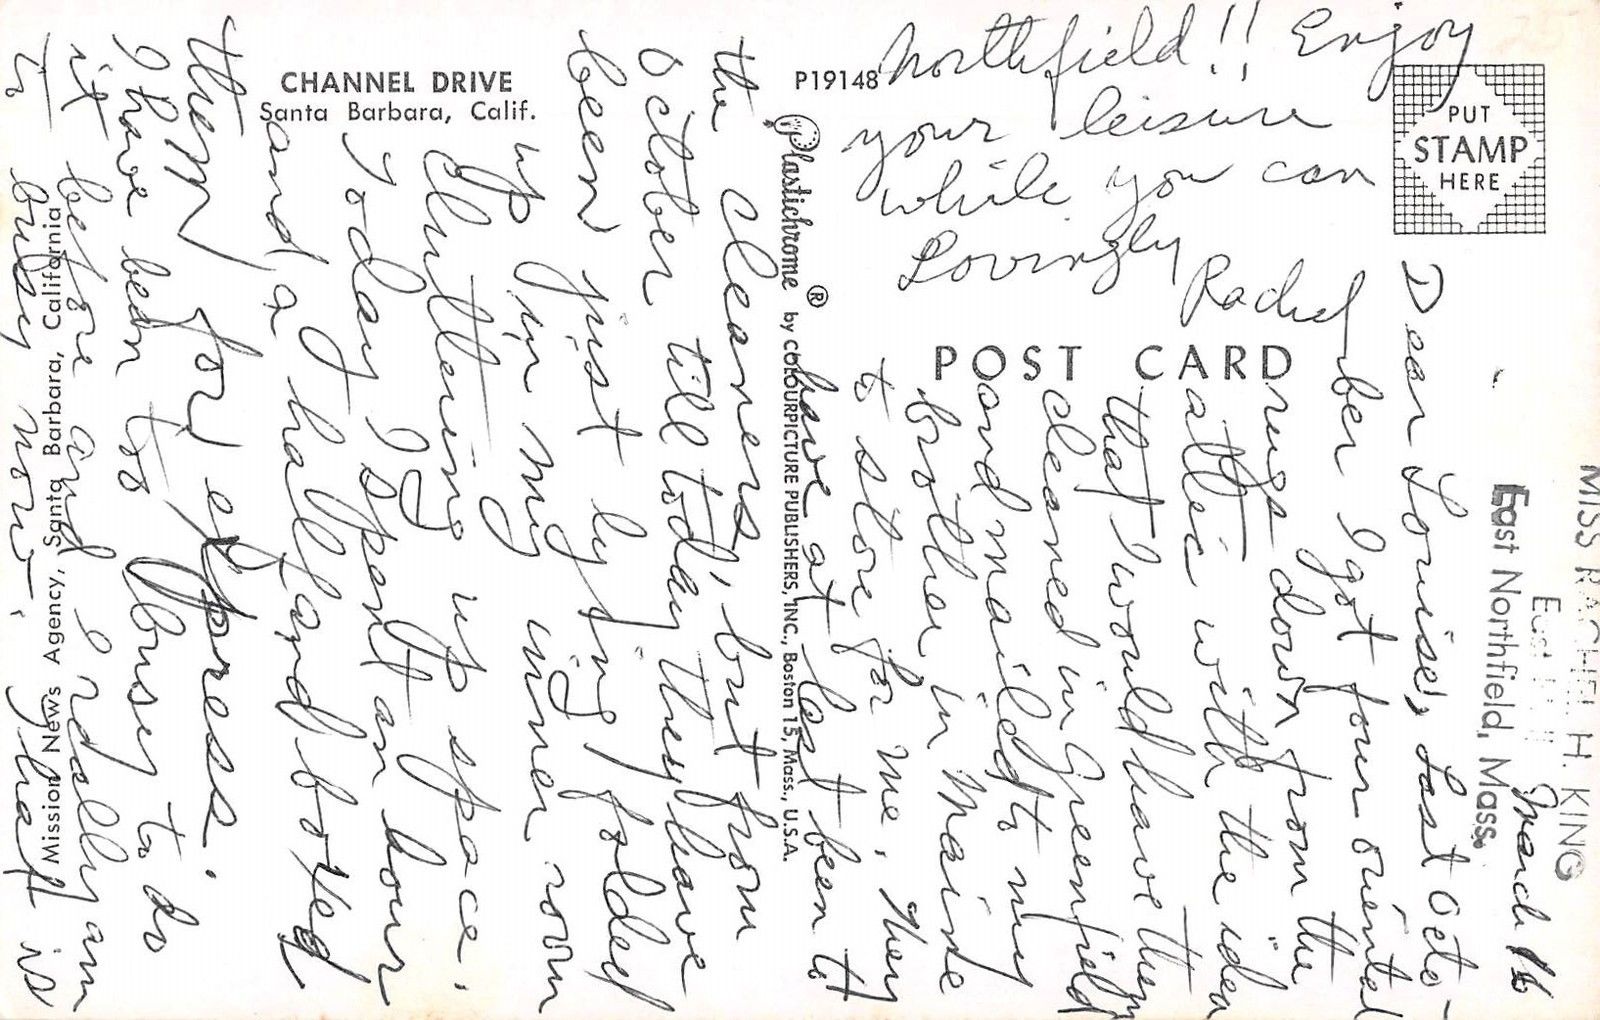 CHANNEL DRIVE
Santa Barbara, Calif.
P19148
PUT
STAMP
HERE
POST CARD
Plastichrome ® by COLOURPICTURE PUBLISHERS, INC., Boston 15, Mass., U.S.A.
Mission News Agency, Santa Barbara, California
MISS RACHEL H. KING
East Northfield, Mass.
March 16
Dear Louise, Last Octo-
ber I got four oriental
rugs down from the
attic with the idea
that I would have them
cleaned in Greenfield
and mailed to my
brother in Maine
to store for me. They
have at last been to
the cleaners, but from
October till today they have
been just lying folded
up in my inner room
cluttering up space.
Today I spent an hour
and a half and boxed
them for express.
I have been too busy to do
it before and I really am
too busy now. That is
Northfield!! Enjoy
your leisure
while you can
Lovingly
Rachel